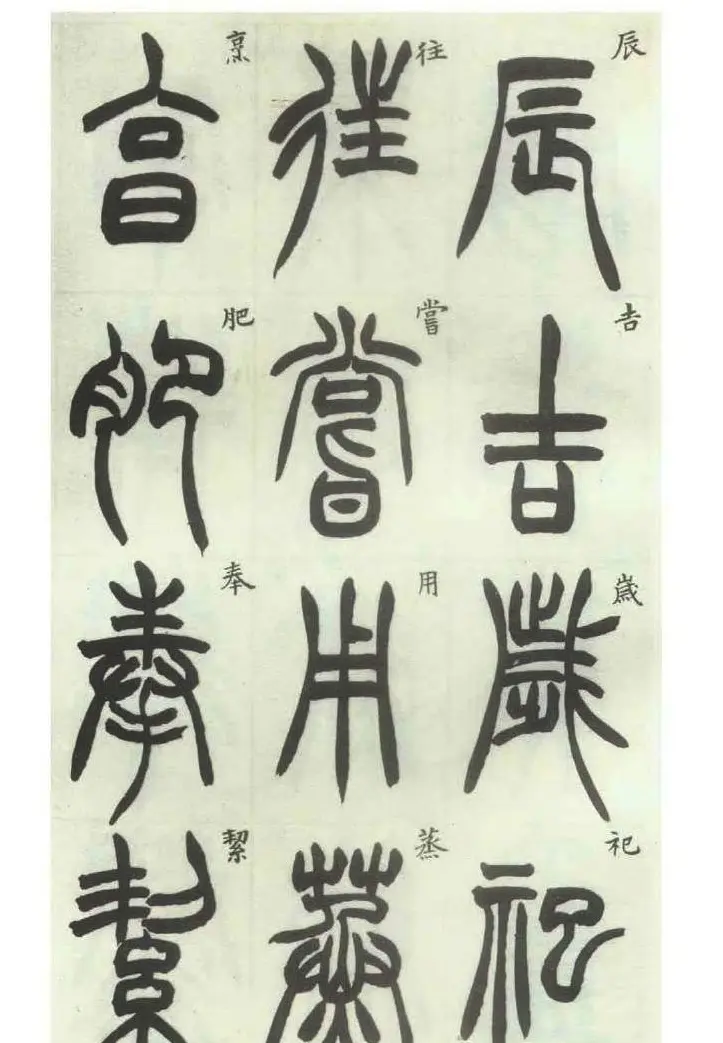 辰吉歲祀
往嘗用蒸
烹肥奉絜